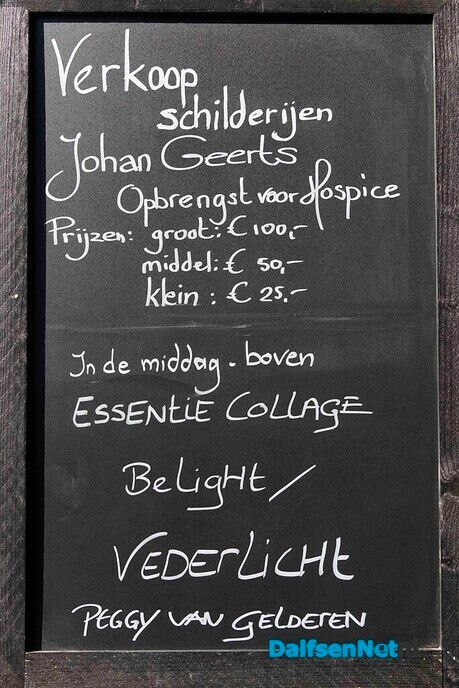 Verkoop
schilderijen
Johan Geerts
Opbrengst voor Hospice
Prijzen: groot: € 100,-
middel: € 50,-
klein : € 25,-
In de middag. boven
ESSENTIE COLLAGE
BeLight /
VEDERLICHT
PEGGY VAN GELDEREN
DalfsenNet